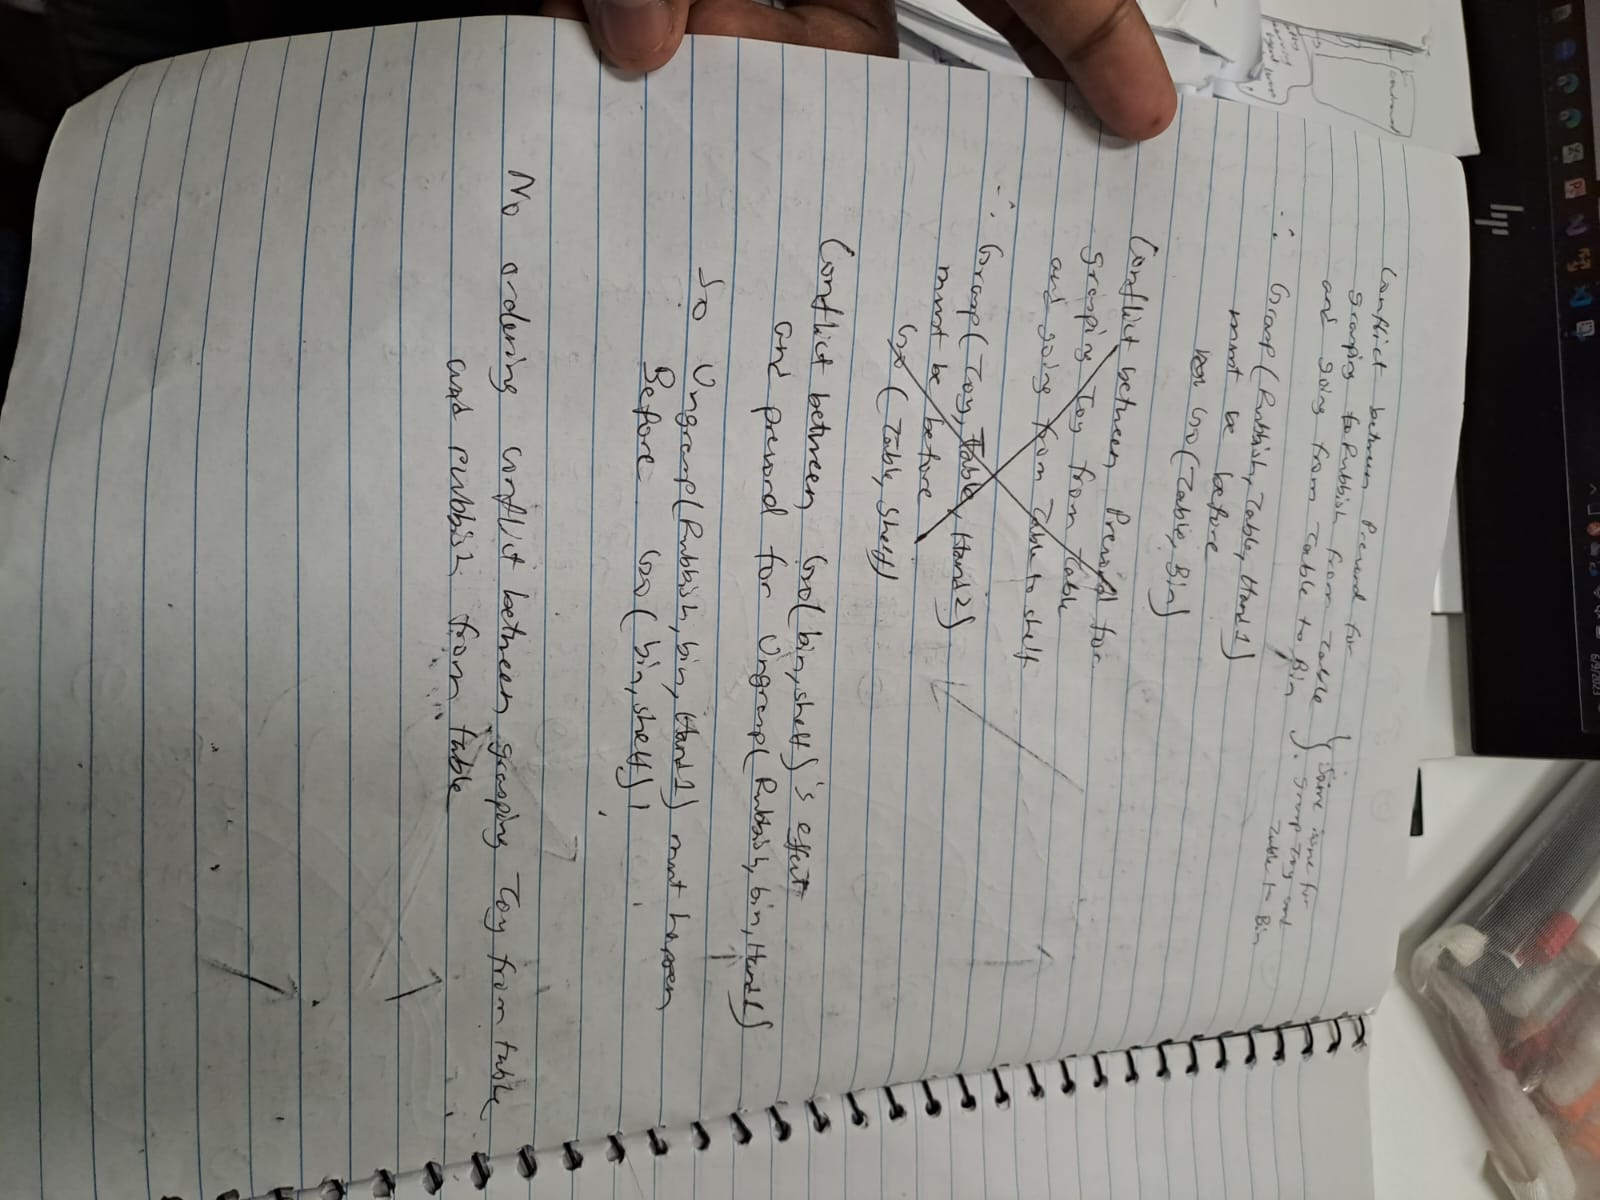 Conflict between Precond for
grasping toRubbish from Table
and going from Table to Bin
} same issue for
grasp Toy and
Table to Bin
∴ Grasp(Rubbish, Table, Hand1)
must be before
Go(Table, Bin)
Conflict between Precond for
grasping Toy from Table
and going from Table to shelf
∴ Grasp(Toy, Table, Hand2)
must be before
Go(Table, Shelf)
Conflict between Go(bin, shelf)'s effect
and precond for Ungrasp(Rubbish, bin, Hand1)
So Ungrasp(Rubbish, bin, Hand1) must happen
Before Go(bin, shelf)!
No ordering conflict between grasping Toy from table
and rubbish from table
hp
6/9/2023